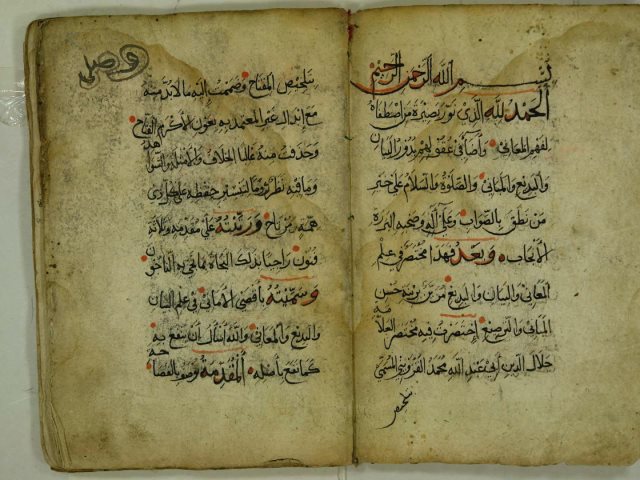 بسم الله الرحمن الرحيم
الحمد لله الذي نور بصيرة من اصطفاه
لفهم المعاني وأضاء في عنق لجيم بدور البيان
والبديع والمباني والصلوة والسلام على خير
من نطق بالصواب وعلى آله وصحبه البررة
الأنجاب وبعد فهذا مختصر في علم
المعاني والبيان والبديع مرتب حسن
المباني والترصيع اختصرت فيه مختصر العلامة
جلال الدين أبي عبد الله محمد القزويني المسمى
تلخيص
وصلى
بتلخيص المفتاح وضممت إليه ما لا بد منه
مع إبدال غير المعتمد به بعون الأكرم الفتاح
وحذفت منه غالبا الخلاف والأمثلة والشواهد
وما فيه نظر روما لتيسر حفظه على كل ذي
همة من ناح ورتبته على مقدمة وثلاثة
فنون راجيا بذلك النجاة مما فيه الفاتنون
وسميته بأقصى الأماني في علم البيان
والبديع والمعاني والله أسأل أن ينفع به
كما نفع بأصله المقدمة وصف بالفصاحة